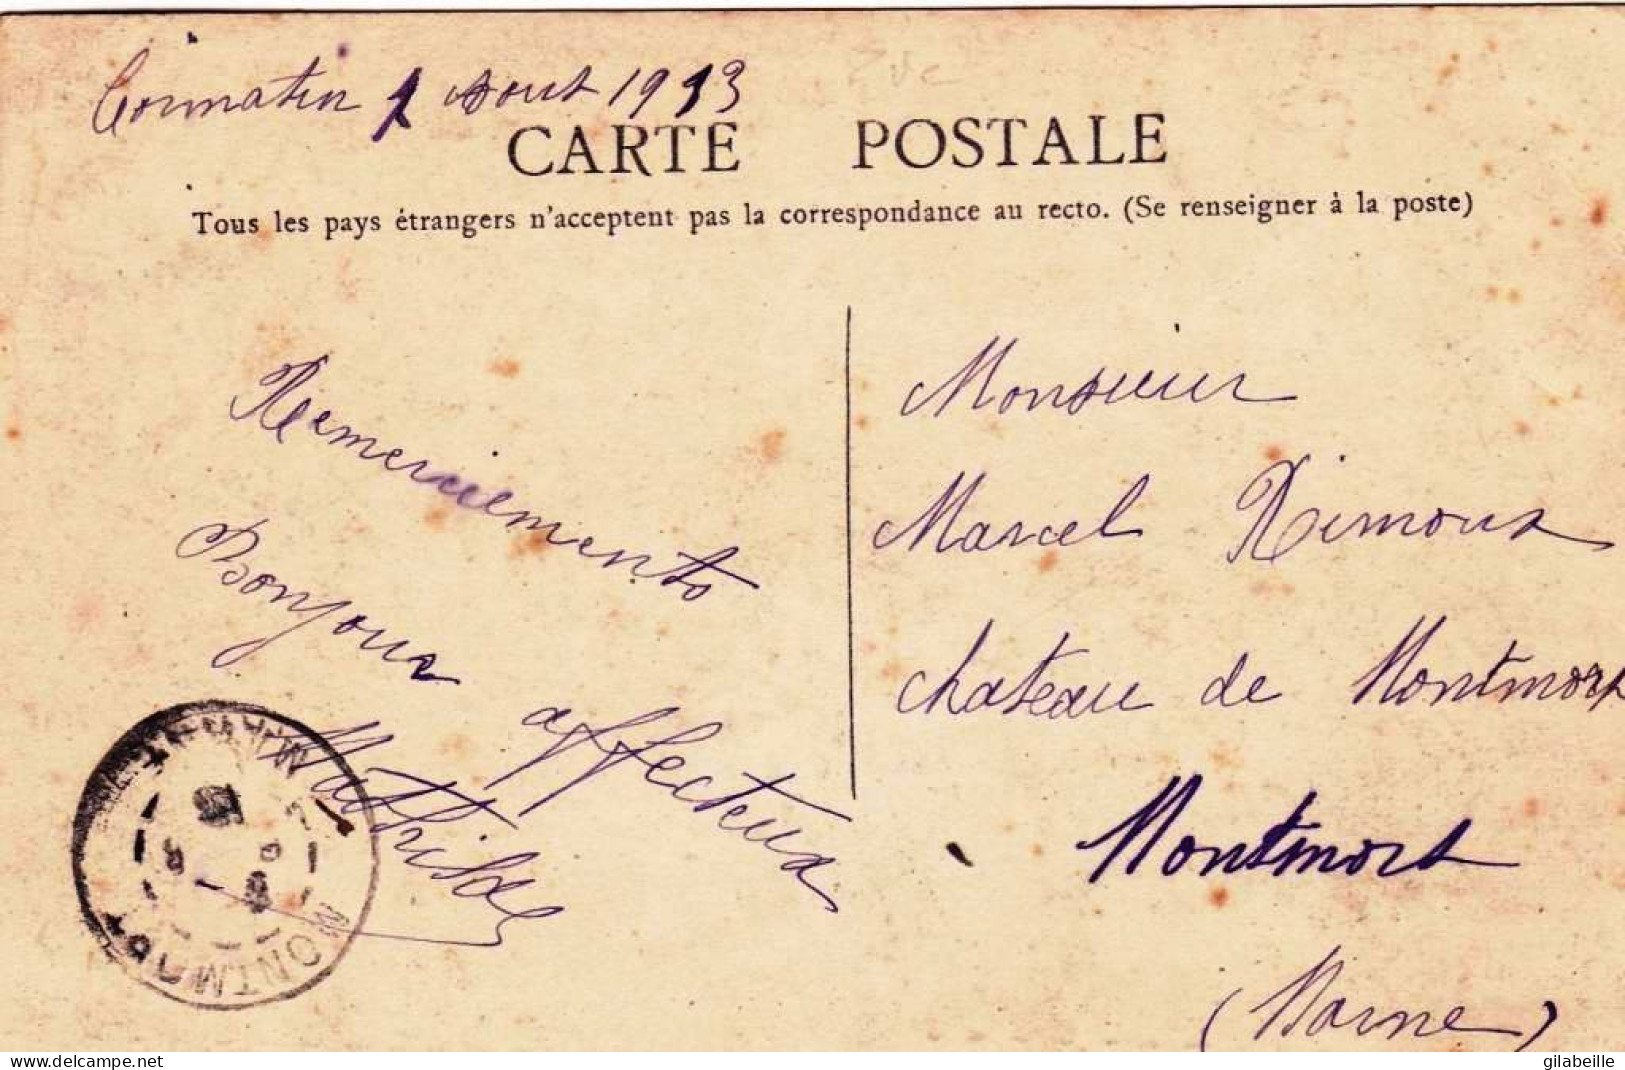 Cormatin 1 Aout 1913
CARTE POSTALE
Tous les pays étrangers n'acceptent pas la correspondance au recto. (Se renseigner à la poste)
Remerciements
Bonjour affectueux
Mathilde
Monsieur
Marcel Rimoux
Chateau de Montmort
Montmort
(Marne)
MONTMORT
MARNE
delcampe.net
gilabeille